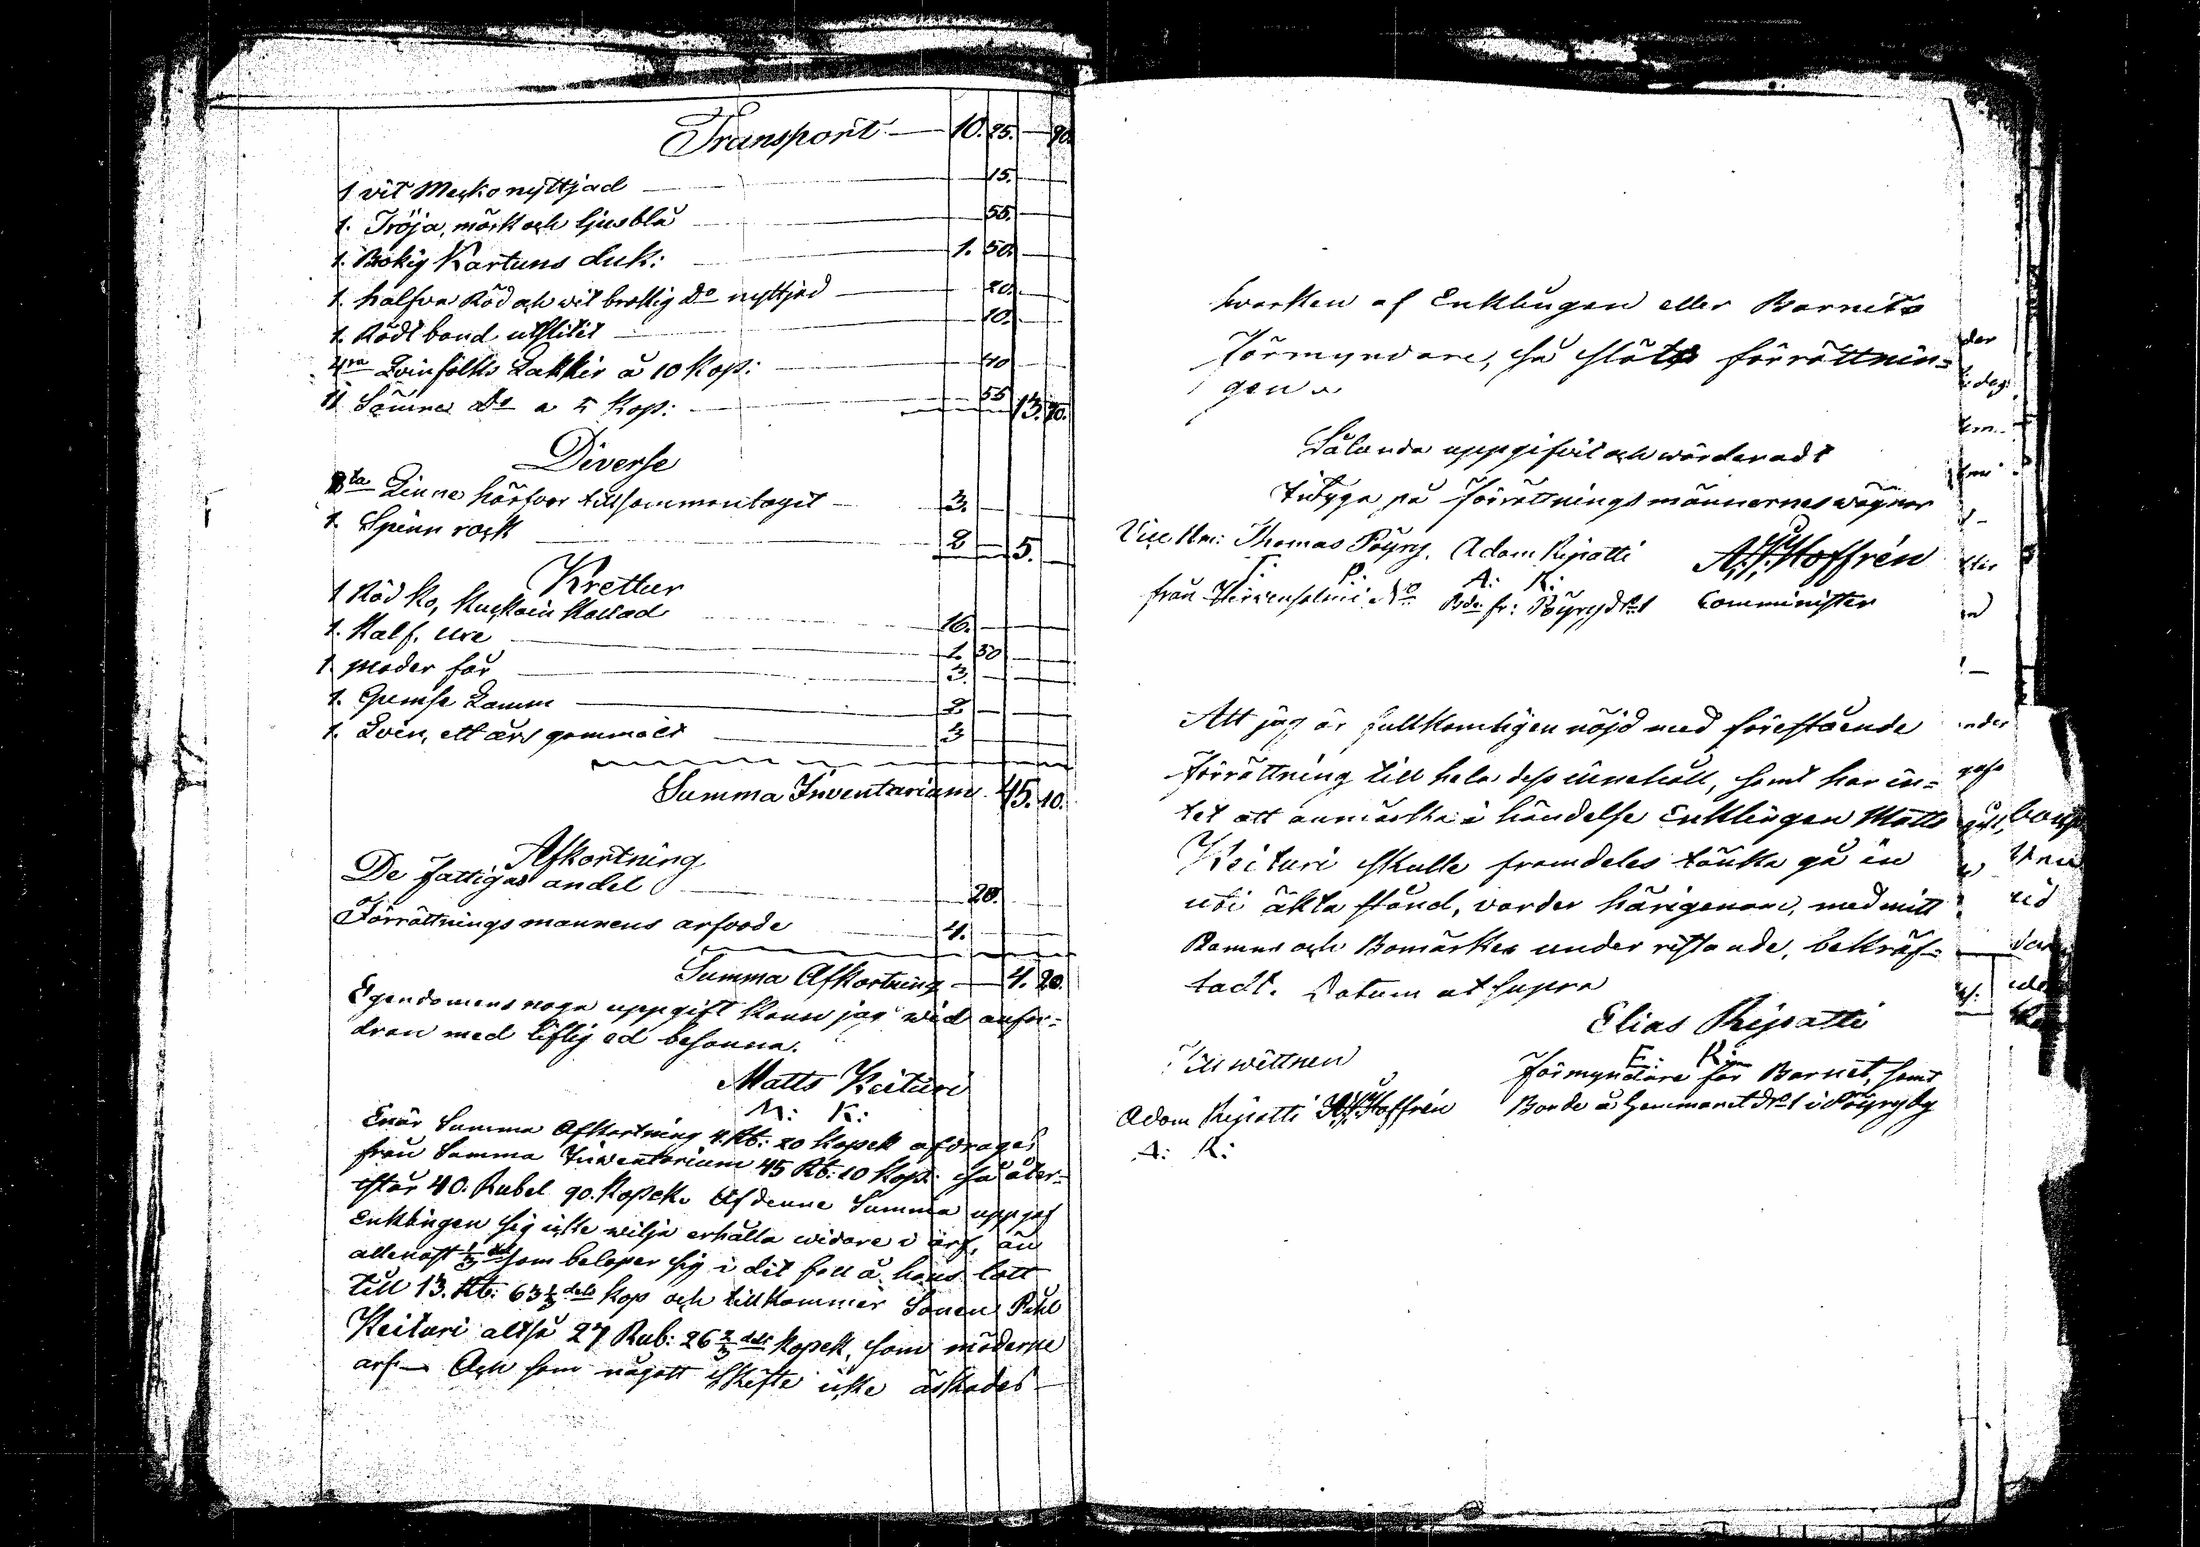 Transport — 10. 25. — 90.
1 vit Mecko nyttjad — 15.
1. Tröja, mörk och ljusblå — 55.
1. Brokig Kartuns duk: — 1. 50.
1. halfva Röd och vit brokig do nyttjad — 20.
1. Rödt band utslitit — 10.
4ra Qvinfolks Lakkir à 10 Kop: — 40
11 Sämre do a 5 Kop: — 55 13. 70.
Diverse
3ta Linne härfvor tillsammantagit — 3.
1. Spinn rock — 2 — 5.
Kretur
1 Röd ko, kallad — 16.
1. Kalf. — 1. 50
1. moder får — 3.
1. Gumse Lamm — 2 —
1. Svin, ett års gammalt — 3
Summa Inventarium 45. 10.
Afkortning
De fattigas andel — 20.
Förrättningsmannens arfvode — 4.
Summa Afkortning — 4. 20.
Egendomens noga uppgift kan jag vid anfor-
dran med liflig ed besanna.
Matts Keituri
M: K:
Enär Summa Afkortning 4. Rb: 20 Kopek afdrages
från Summa Inventarium 45 Rb: 10 Kop: så åter-
står 40. Rubel 90. Kopek. Af denne Summa uppgaf
Enklingen sig icke vilja erhålla vidare i arf, än
allenast 1/3 del som beloper sig i dit fall å hans lott
till 13. Rb: 63 1/3 dels Kop och tillkommer Sonen Påhl
Keituri altså 27 Rub: 26 2/3 dels Kopek, som möderne
arf — Och som någott Skifte icke äskades
hvarken af Enklingen eller Barnets
Förmyndare, så slöts förrättnin-
gen
Sålunda uppgifvit och värderadt
betyga på förrättningsmännernes vägnar
Vice Nm: Thomas Pöyry, Adam Rijpatti A. J. Hoffrén
T. P: A: R:
från Hirvensalmi No Bde fr: Pöyry No 1 Comminister
Att jag är fullkomligen nöjd med förestående
Förrättning till hela dess innehåll, samt har in-
tet att anmärka i händelse Enklingen Matts
Keituri skulle framdeles tänka gå in
uti äkta stånd, varder härigenom, med mitt
Namn och Bomärkes under ristande, bekräf-
tadt. Datum ut supra
Elias Rijpatti
E: R:
Till vittnen Förmyndare för Barnet, samt
Adam Rijpatti A. J. Hoffrén Bonde å Hemmanet No 1 i Pöyry by
A: R: